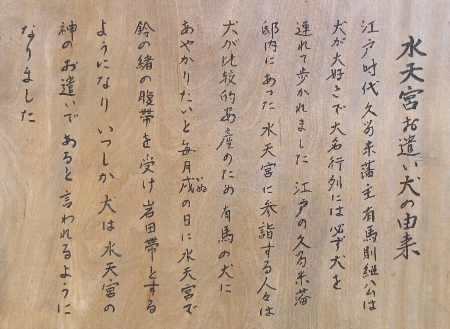 水天宮お遣い犬の由来
江戸時代久留米藩主有馬則維公は
犬が大好きで大名行列には必ず犬を
連れて歩かれました 江戸の久留米藩
邸内にあった水天宮に参詣する人々は
犬が比較的安産のため有馬の犬に
あやかりたいと毎月戌(いぬ)の日に水天宮で
鈴の緒の腹帯を受け岩田帯とする
ようになり いつしか犬は水天宮の
神のお遣いであると言われるように
なりました